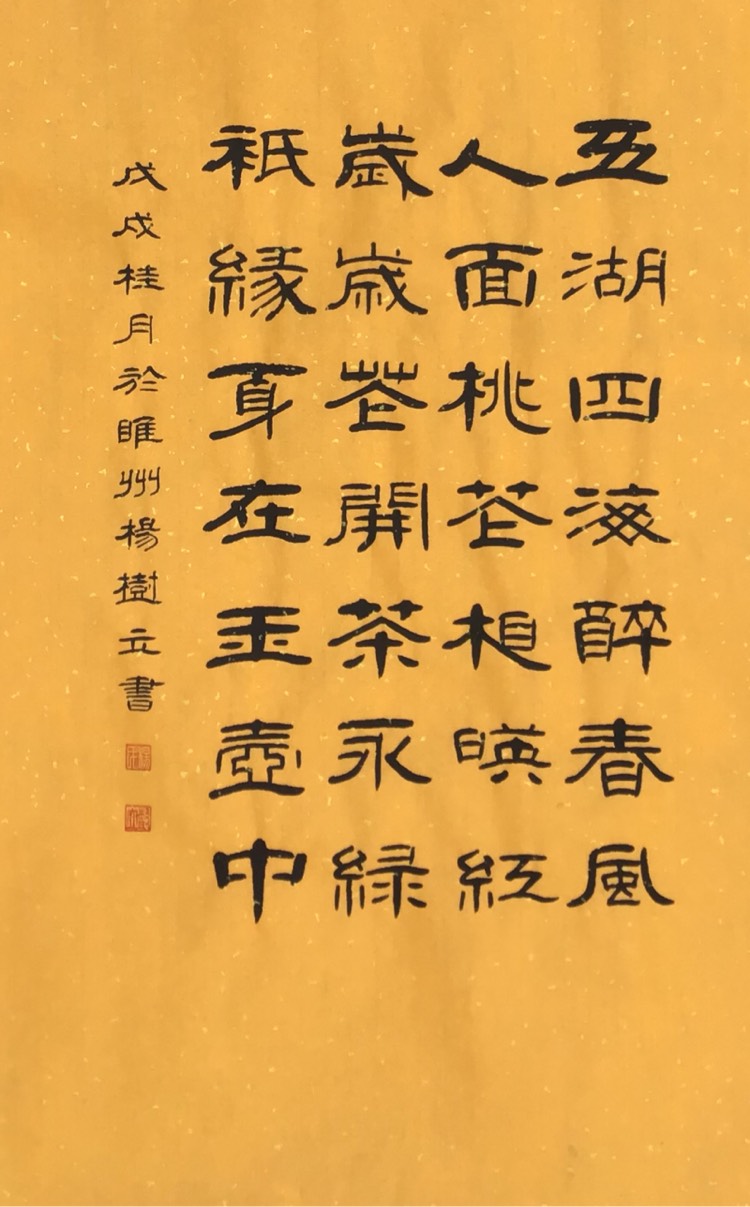 五湖四海醉春風
人面桃花相暎紅
歲歲花開茶永緑
祇緣身在玉壺中
戊戌桂月於睢州楊樹立書